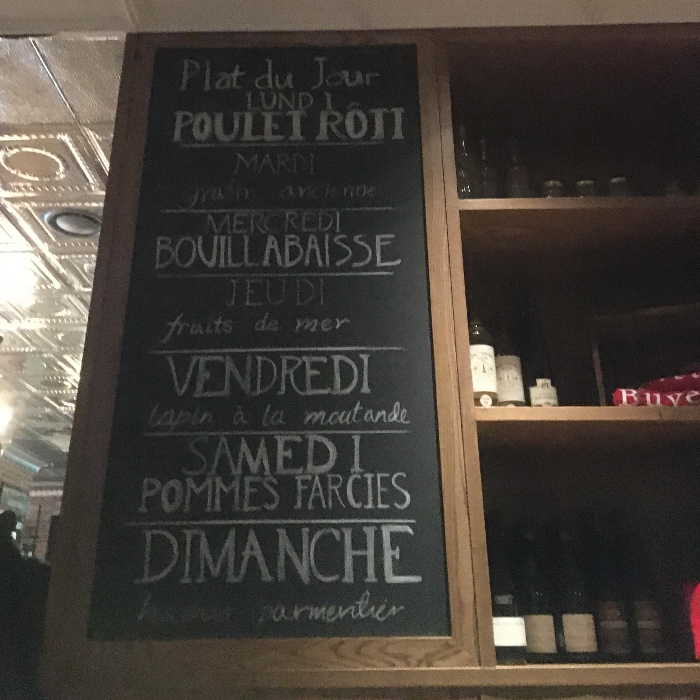 Plat du Jour
LUNDI
POULET RÔTI
MARDI
gratin ancienne
MERCREDI
BOUILLABAISSE
JEUDI
fruits de mer
VENDREDI
lapin à la moutande
SAMEDI
POMMES FARCIES
DIMANCHE
parmentier
Buve